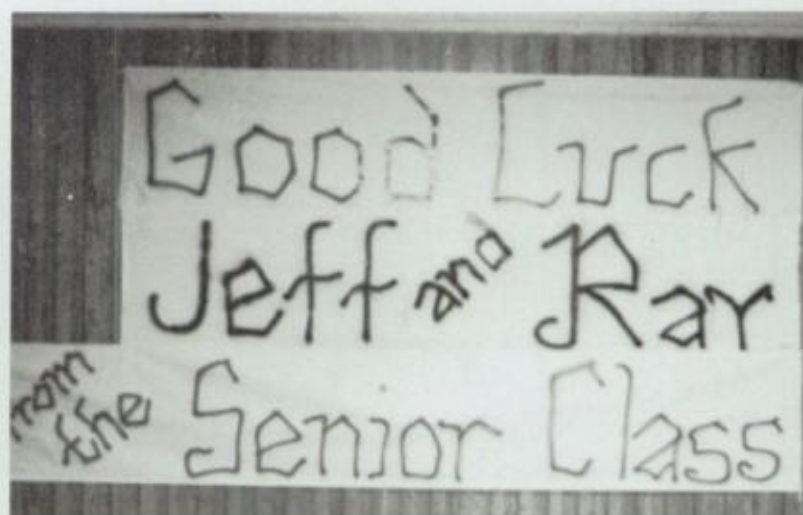 Good Luck
Jeff and Ray
from
the Senior Class